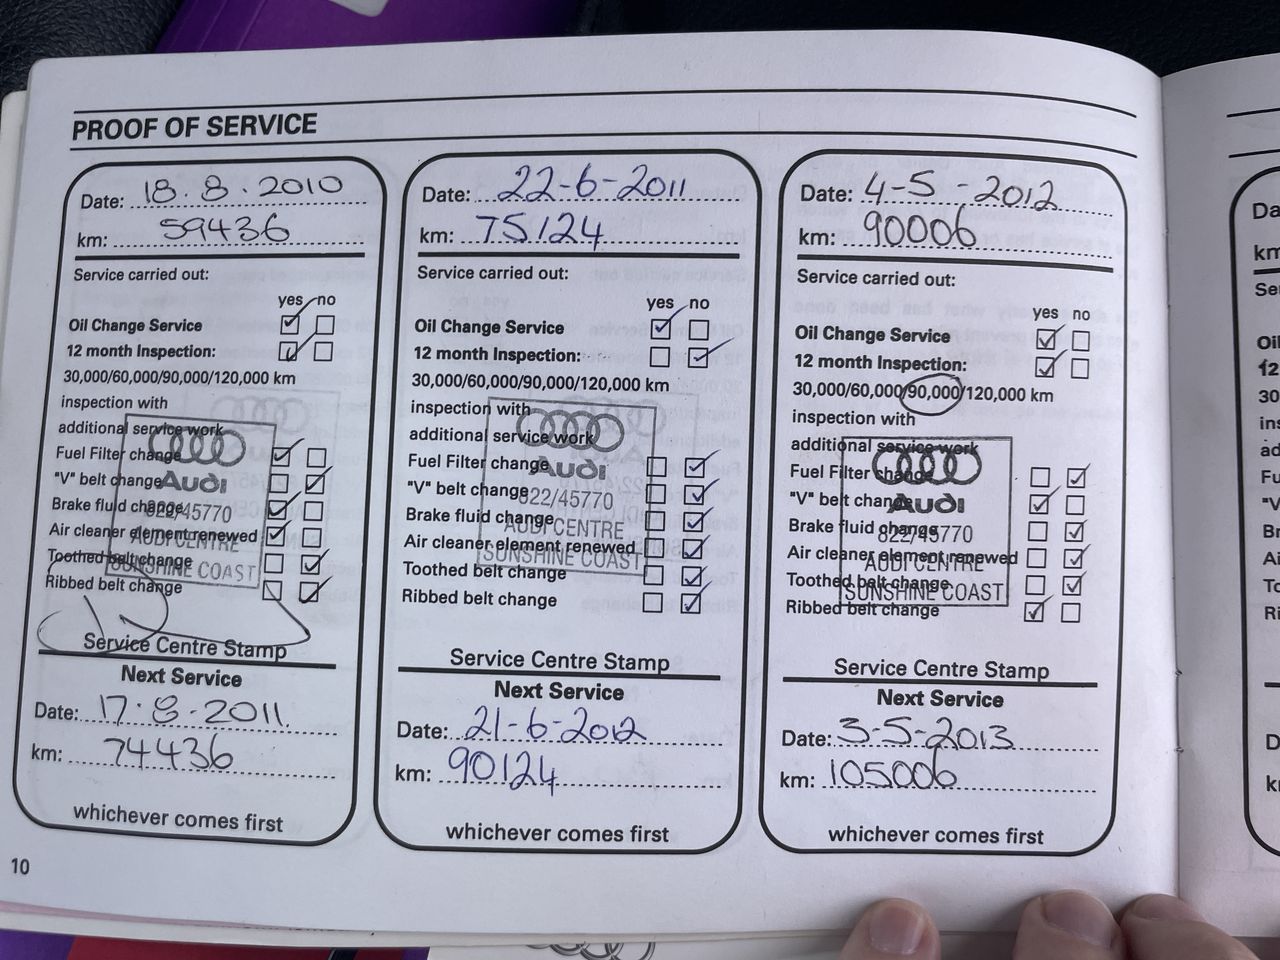 PROOF OF SERVICE
Date: 18.8.2010
km: 59436
Service carried out:
yes no
Oil Change Service
12 month Inspection:
30,000/60,000/90,000/120,000 km
inspection with
additional service work
Fuel Filter change
"V" belt change
Brake fluid change
Air cleaner element renewed
Toothed belt change
Ribbed belt change
Audi
822/45770
AUDI CENTRE
SUNSHINE COAST
Service Centre Stamp
Next Service
Date: 17.8.2011.
km: 74436
whichever comes first
Date: 22-6-2011
km: 75124
Service carried out:
yes no
Oil Change Service
12 month Inspection:
30,000/60,000/90,000/120,000 km
inspection with
additional service work
Fuel Filter change
"V" belt change
Brake fluid change
Air cleaner element renewed
Toothed belt change
Ribbed belt change
Audi
822/45770
AUDI CENTRE
SUNSHINE COAST
Service Centre Stamp
Next Service
Date: 21-6-2012
km: 90124
whichever comes first
Date: 4-5-2012
km: 90006
Service carried out:
yes no
Oil Change Service
12 month Inspection:
30,000/60,000/90,000/120,000 km
inspection with
additional service work
Fuel Filter change
"V" belt change
Brake fluid change
Air cleaner element renewed
Toothed belt change
Ribbed belt change
Audi
822/45770
AUDI CENTRE
SUNSHINE COAST
Service Centre Stamp
Next Service
Date: 3-5-2013
km: 105006
whichever comes first
10